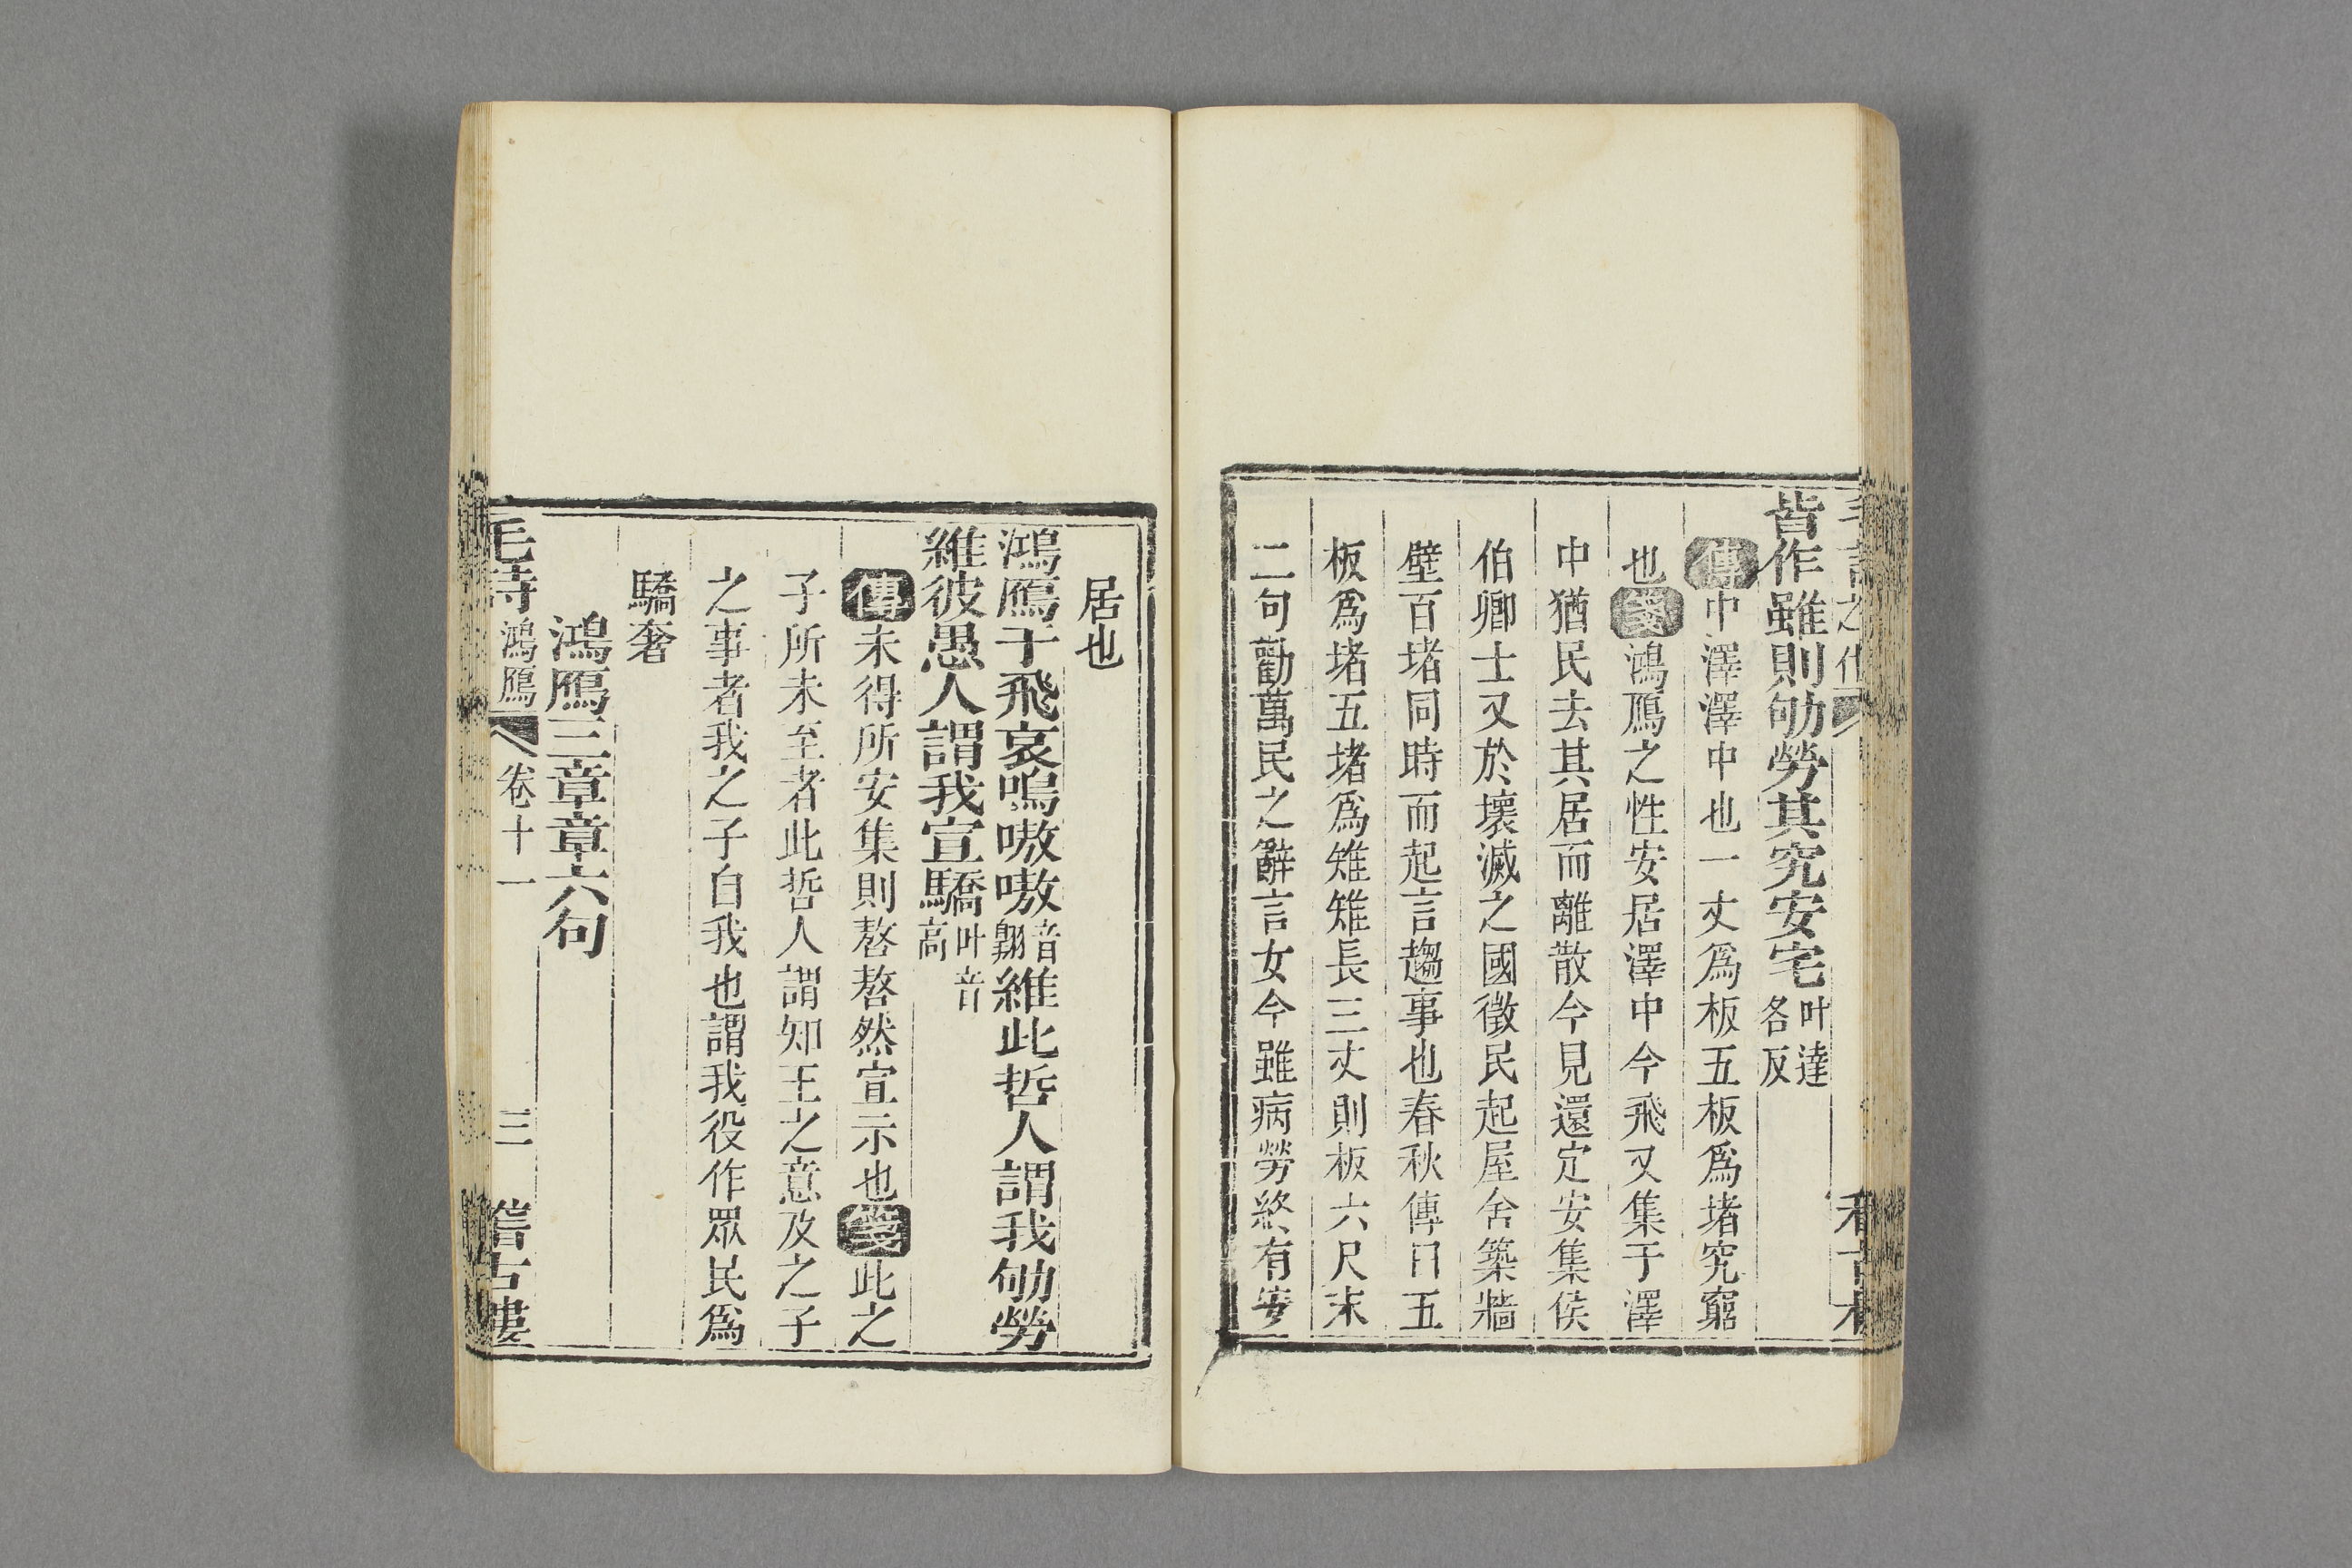 皆作雖則劬勞其究安宅叶達各反
傳中澤澤中也一丈爲板五板爲堵究窮
也箋鴻鴈之性安居澤中今飛又集于澤
中猶民去其居而離散今見還定安集侯
伯卿士又於壞滅之國徵民起屋舍築牆
壁百堵同時而起言趨事也春秋傳曰五
板爲堵五堵爲雉雉長三丈則板六尺末
二句勸萬民之辭言女今雖病勞終有安
居也
鴻鴈于飛哀鳴嗷嗷音翺維此哲人謂我劬勞
維彼愚人謂我宣驕叶音高
傳未得所安集則嗸嗸然宣示也箋此之
子所未至者此哲人謂知王之意及之子
之事者我之子自我也謂我役作眾民爲
驕奢
鴻鴈三章章六句
毛詩 鴻鴈 卷十一 三 稽古樓